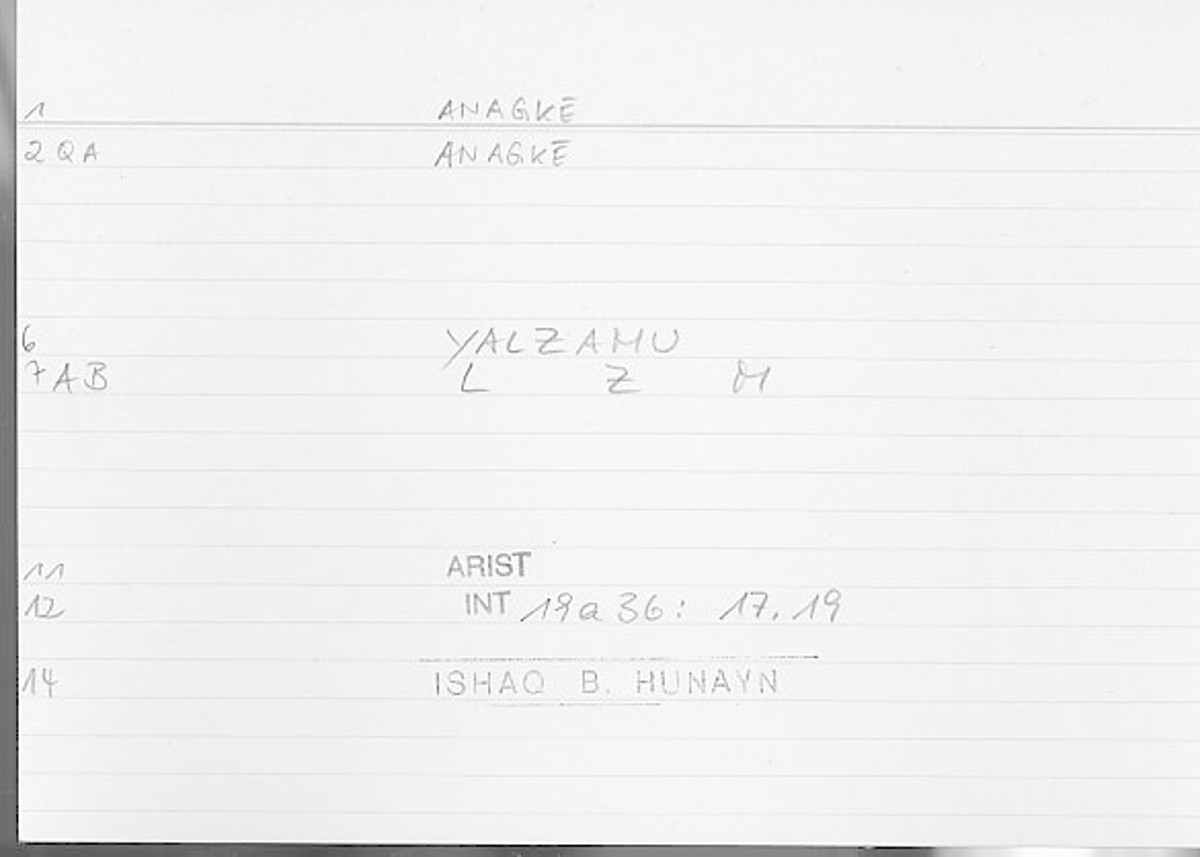 1 ANAGKĒ
2 Q A ANAGKĒ
6 YALZAMU
7 A B L Z M
11 ARIST
12 INT 19a 36: 17.19
14 ISHAQ B. HUNAYN